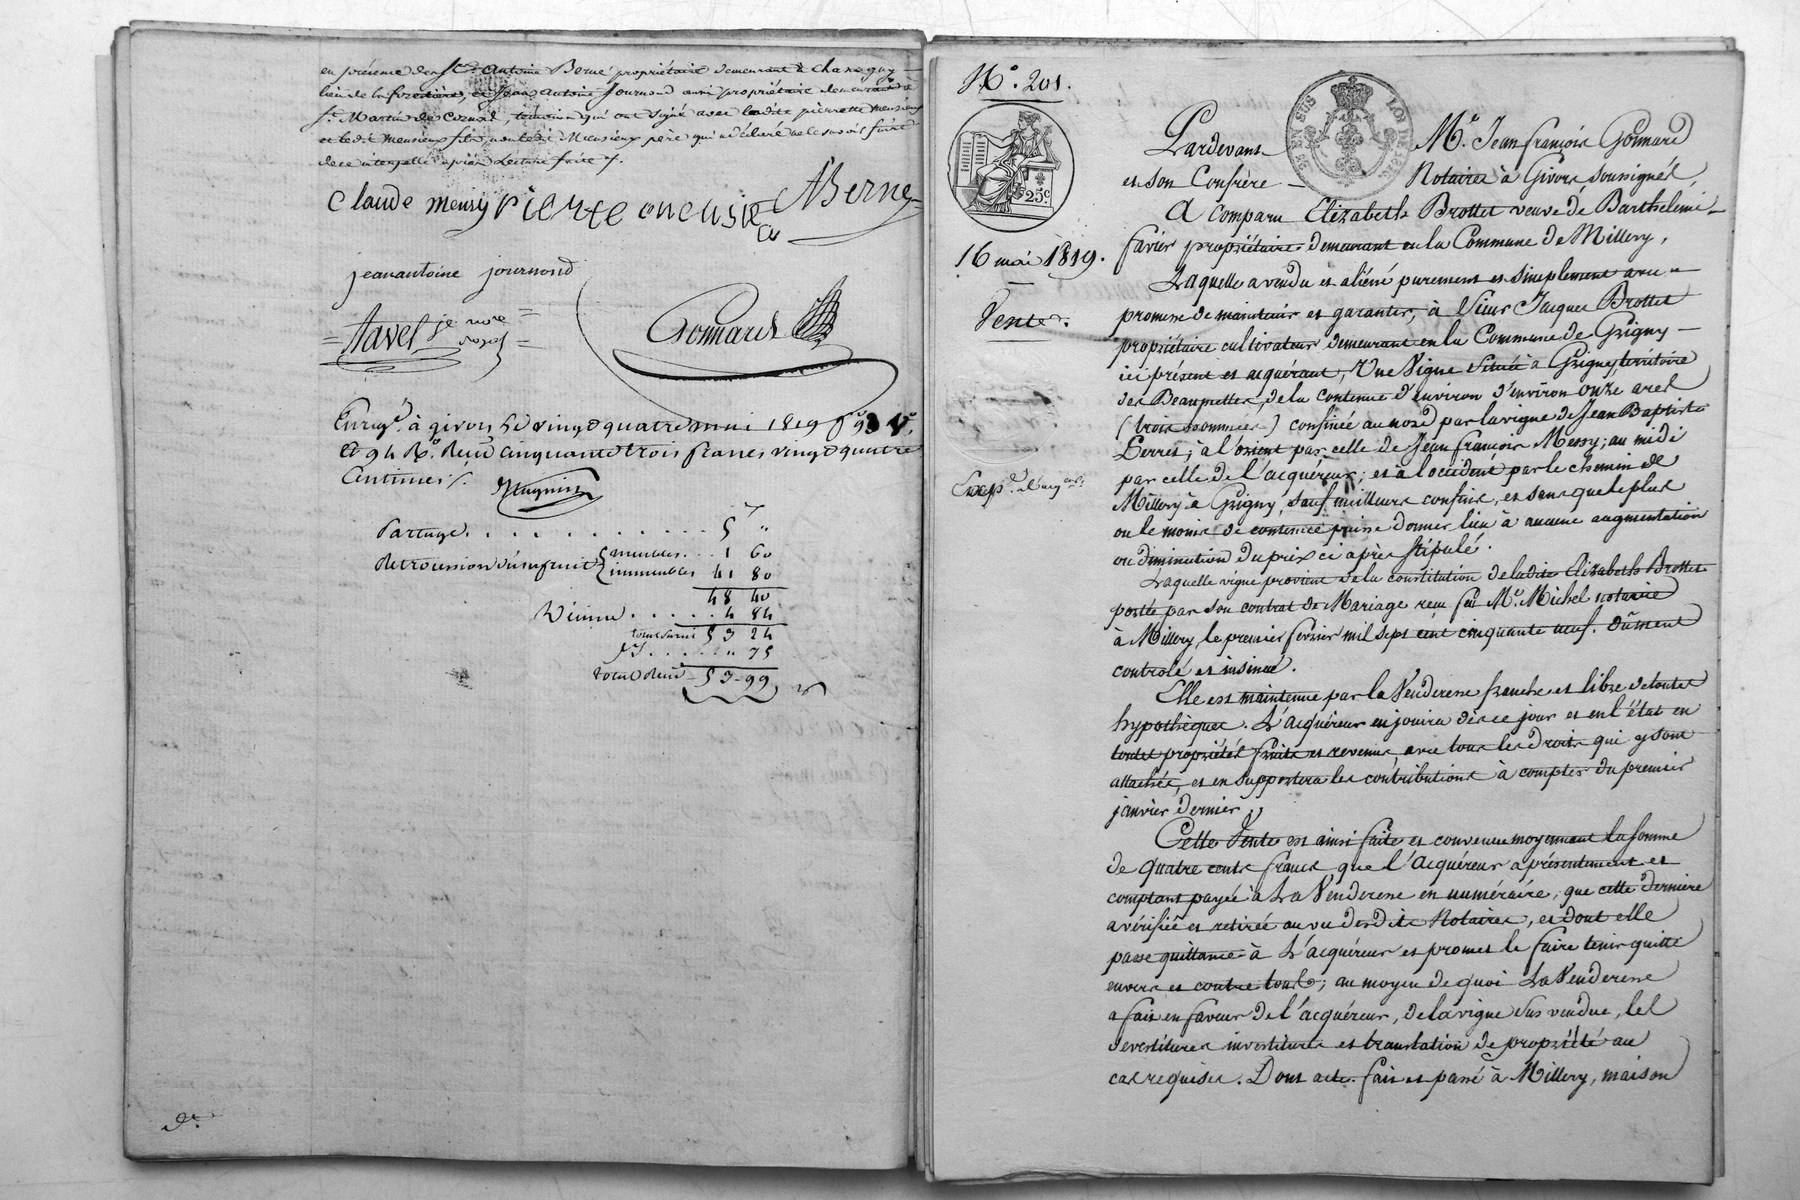 en présence des Srs Antoine Berne propriétaire demeurant à Chassagny
lieu de la forestière, et Jean Antoine Journoud aussi propriétaire demeurant à
St. Martin de Cornas, témoins qui ont signé avec ladite pierrette mensieux
et ledit mensieux fils, non ledit Mensieux père qui a déclaré ne le savoir faire
de ce interpellé après Lecture faite
Claude mensy pierre ABerne
jeanantoine journond
Favel
Goinard
Enregé à givors Le vingt quatre mai 1819
et 94 Ro. Reçu cinquante trois francs vingt quatre
Centimes
Partage . . . . . . . . . 5 "
Retrocession d'usufruit { meubles . . . 1 60
{ immeubles 41 80
48 40
Dixième . . . . . 4 84
53 24
. . . . " 75
total Reçu 53 99
No. 201.
LOI DE 1816
25c
16 mai 1819.
Vente.
Expé. d'acqr.
Pardevant Me. Jean françois Goinard
et son Confrère Notaires à Givors soussignés
A comparu Elizabeth Brottet veuve de Barthélemi
favier propriétaire demeurant en la Commune de Millery,
Laquelle a vendu et aliéné purement et simplement avec
promesse de maintenir et garantir, à Sieur Jacques Brottet
propriétaire cultivateur demeurant en la Commune de Grigny
ici présent et acquérant, Une Vigne Située à Grigny, territoire
des Beaumettes, de la contenue d'environ d'environ onze ares
(trois hommées) confinée au nord par la vigne de Jean Baptiste
Perret; à l'orient par celle de Jean françois Messy; au midi
par celle de l'acquéreur; et à l'occident par le chemin de
Millery à Grigny, sauf meilleurs confins, et sans que le plus
ou le moins de contenue puisse donner lieu à aucune augmentation
ou diminution du prix ci après stipulé.
Laquelle vigne provient de la constitution de ladite Elizabeth Brottet
portée par son contrat de Mariage reçu feu Me. Michel notaire
à Millery le premier fevrier mil sept cent cinquante neuf. dûment
controlé et insinué.
Elle est maintenue par la Venderesse franche et libre de toutes
hypothèques. L'acquéreur en jouira dès ce jour et en l'état en
toutes propriétés fruits et revenus, avec tous les droits qui y sont
attachés, et en supportera les contributions à compter du premier
janvier dernier.
Cette Vente est ainsi faite et convenue moyennant la somme
de Quatre cents francs que l'Acquéreur a présentement et
comptant payée à La Venderesse en numéraire, que cette dernière
a vérifiée et retirée au vu desdits Notaires, et dont elle
passe quittance à L'acquéreur et promet le faire tenir quitte
envers et contre tous; au moyen de quoi La Venderesse
a fait en faveur de l'acquéreur, de la vigne sus vendue, les
devestitures investitures et translation de propriété au
cas requises. Dont acte. fait et passé à Millery, maison